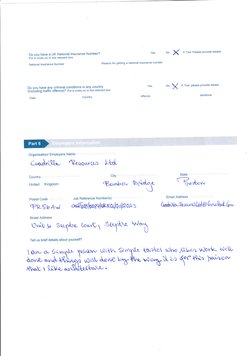 Do you have a UK National Insurance Number?
Put a cross (x) in the relevant box
Yes No X If 'Yes' Please provide details
National Insurance Number Reason for getting a National Insurance number
Do you have any criminal convictions in any country
(including traffic offences)? Put a cross (x) in the relevant box
Yes No X If 'Yes' please provide details
Date Country offence sentence
Part 6 Employers Information
Organisation/ Employers Name
Cuadrilla Resources Ltd
Country City State
United Kingdom Bamber Bridge Preston
Postal Code Job Reference Number(s) Email Address
PR5 6AW
Street Address
Unit 6 Sceptre Court, Sceptre Way
Tell us brief details about yourself?
I am a Simple person with Simple tastes who likes work well
done and things well done by the way it is for this
that I like architecture.